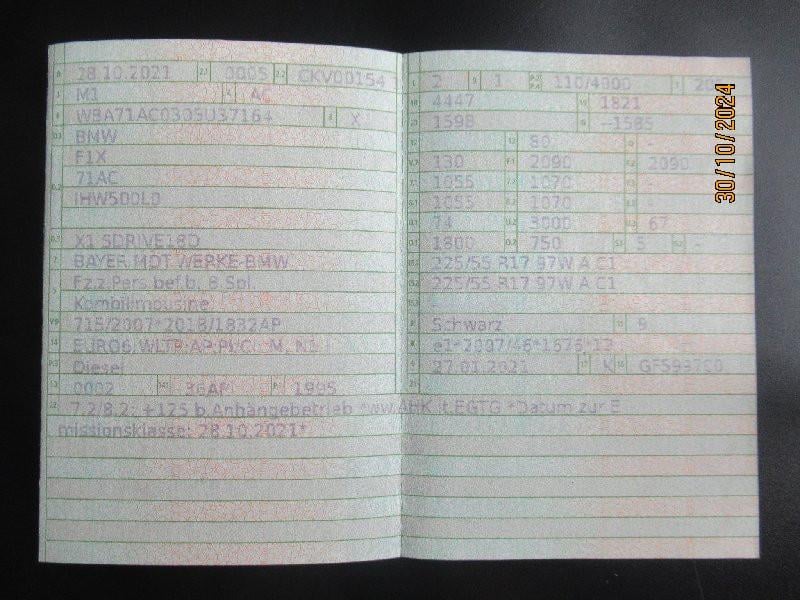 B 28.10.2021 2.1 0005 2.2 CKV00154
J M1 4 AC
E WBA71AC0305U37164 3 X
D.1 BMW
F1X
D.2 71AC
IHW500L0
D.3 X1 SDRIVE18D
2 BAYER.MOT.WERKE-BMW
5 Fz.z.Pers.bef.b. 8 Spl.
Kombilimousine
V.9 715/2007*2018/1832AP
14 EURO6
P.3 Diesel
10 0002 14.1 36AP P.1 1995
22 7.2/8.2: +125 b.Anhängebetrieb *ww.AHK lt.EGTG *Datum zur E
missionsklasse: 28.10.2021*
L 2 9 1 P.2 P.4 110/4000 T
18 4447 19 1821
20 1598 G --1585
12 - 13 80 Q -
V.7 130 F.1 2090 F.2 2090
7.1 1055 7.2 1070 7.3 -
8.1 1055 8.2 1070 8.3 -
U.1 74 U.2 3000 U.3 67
O.1 1800 O.2 750 S.1 5 S.2 -
15.1 225/55 R17 97W A C1
15.2 225/55 R17 97W A C1
15.3 -
R Schwarz 11 9
K e1*2007/46*1676*13
6 27.01.2021 17 K 16
21
30/10/2024